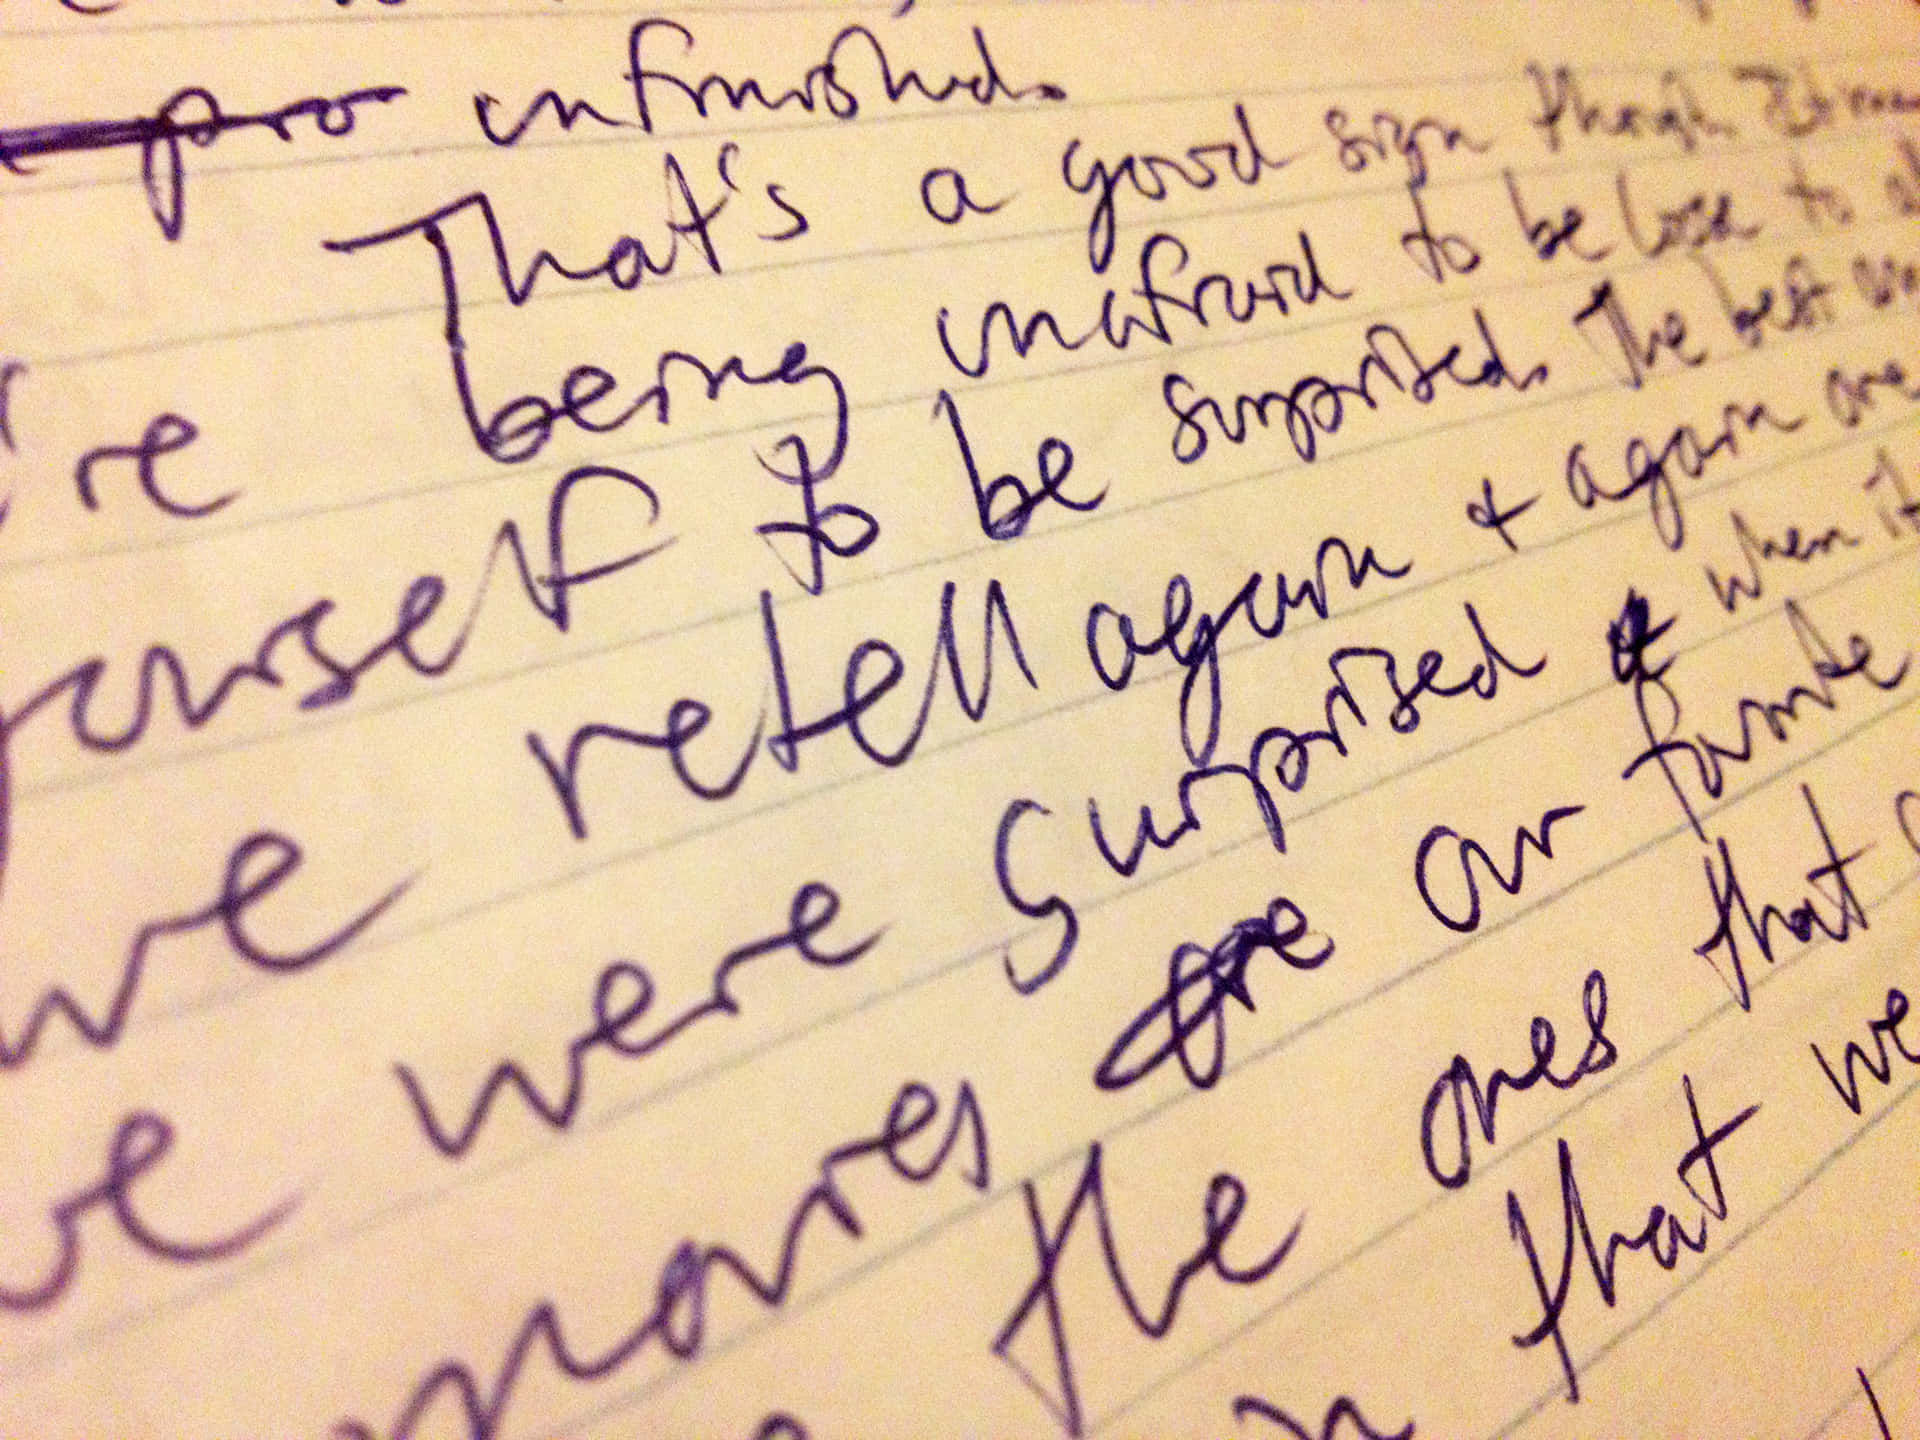 unfinished.
That's a good sign though
're being unafraid to be lost to
yourself to be surprised. The best
we retell again & again are
we were surprised & when it
movies are our favorite
the ones that
that we